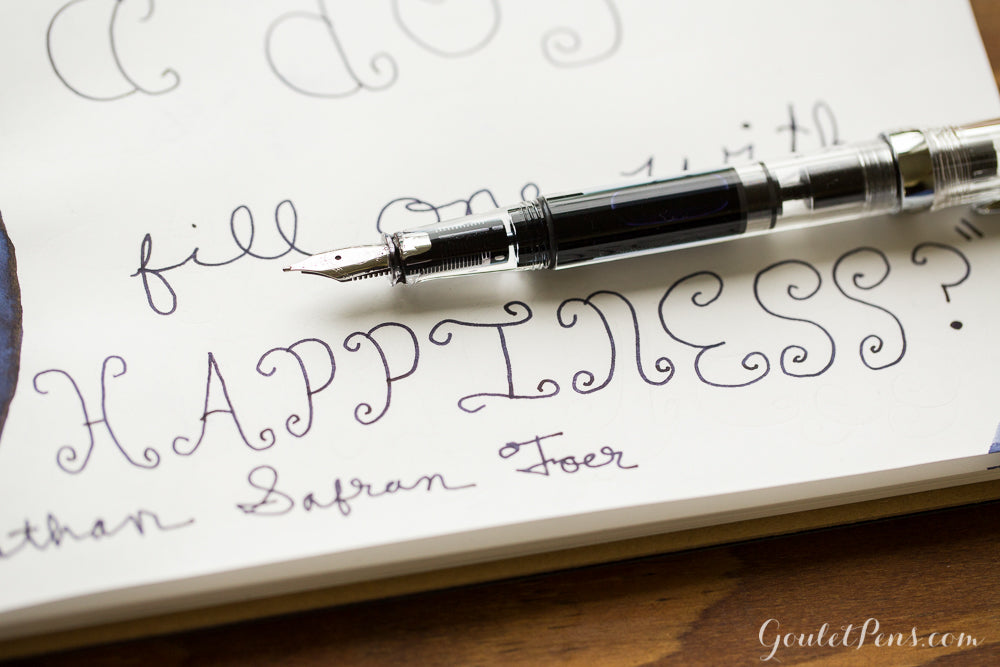 fill one with
HAPPINESS?"
Safran Foer
GouletPens.com